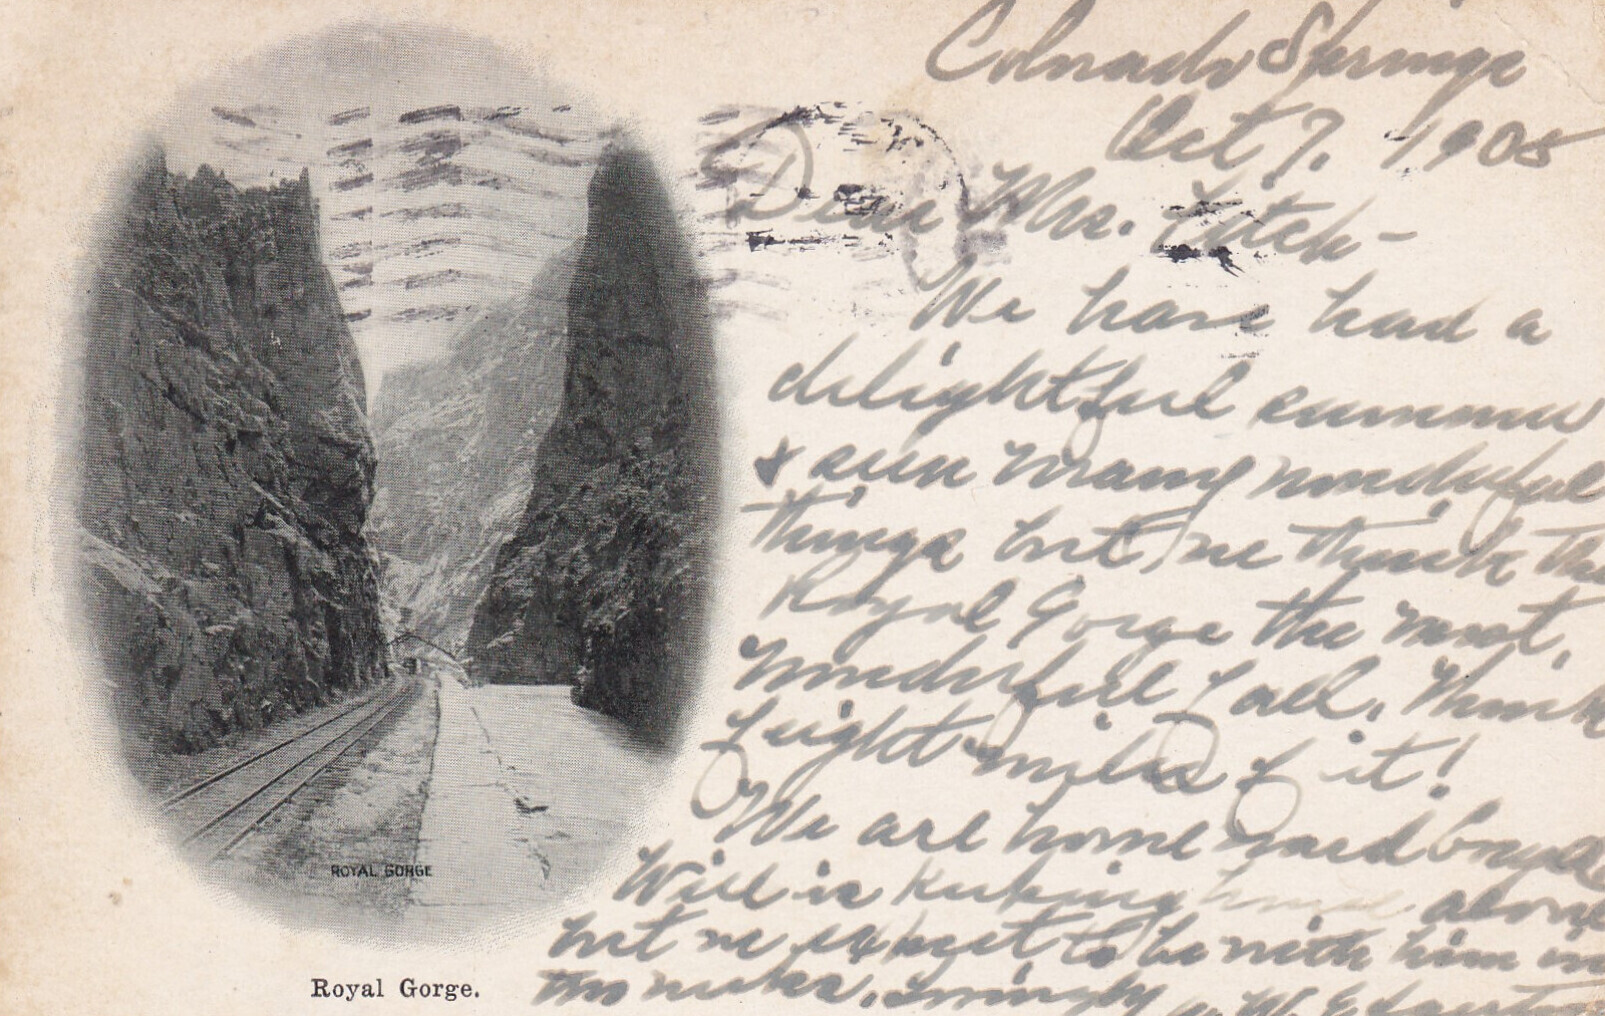 Colorado Springs
Oct 7. 1905
Dear Mrs.
We have had a
delightful summer
& seen many wonderful
things but we think the
Royal Gorge the most
wonderful of all. Think
of eight miles of it!
We are homeward bound
Will is keeping house alone
but we expect to be with him in
two weeks. Lovingly
ROYAL GORGE
Royal Gorge.